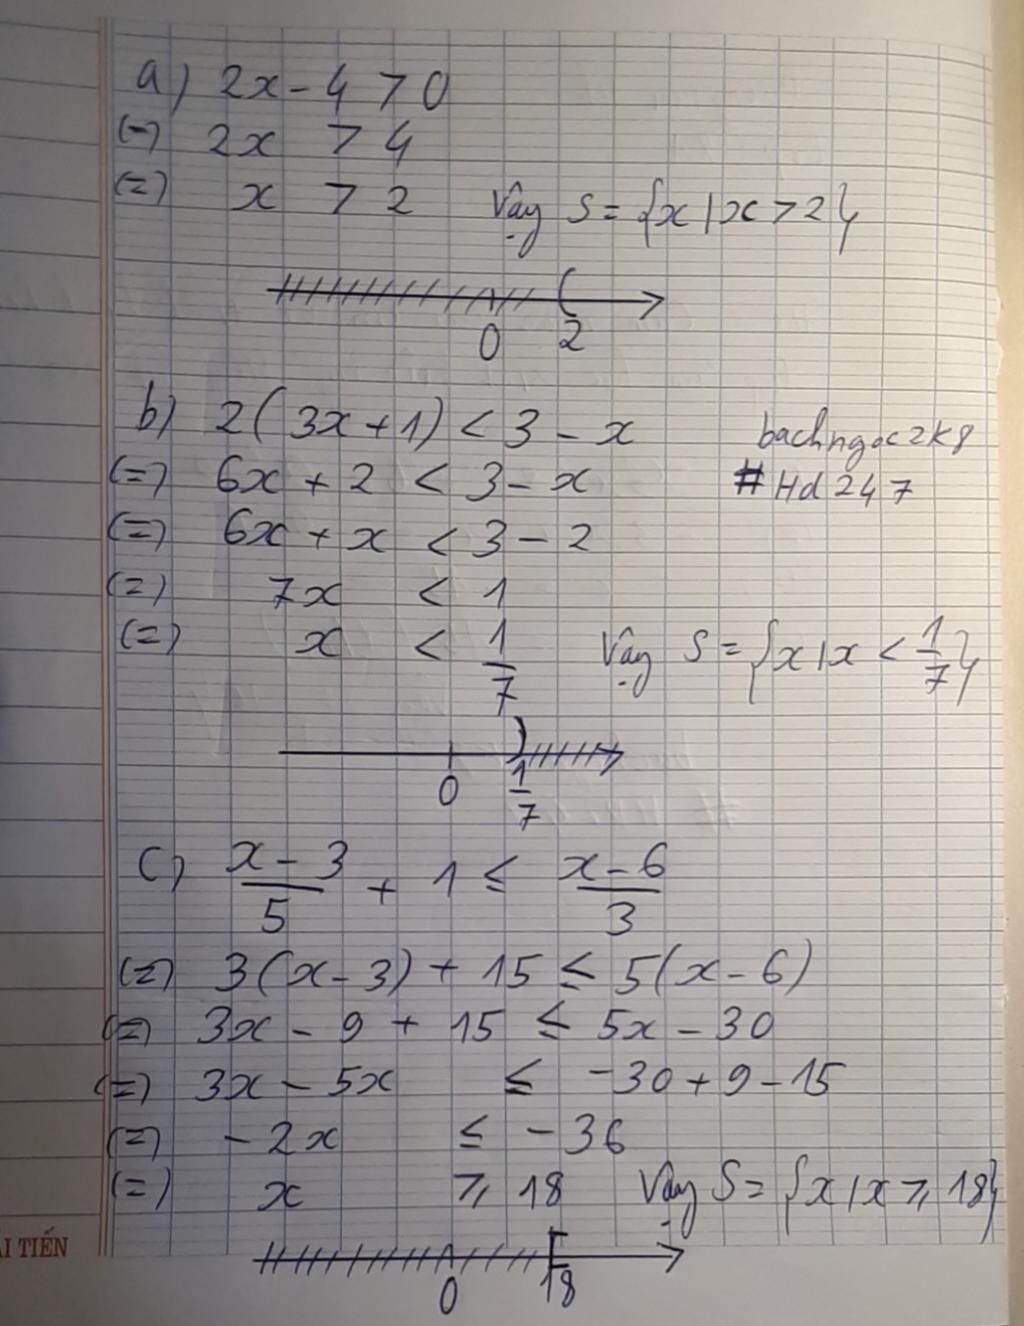 a) 2x - 4 > 0
(=) 2x > 4
(=) x > 2 Vậy S = {x | x > 2}
0 2
b) 2(3x + 1) < 3 - x
bachngoc2k8
(=) 6x + 2 < 3 - x
#Hd247
(=) 6x + x < 3 - 2
(=) 7x < 1
(=) x < 1/7 Vậy S = {x | x < 1/7}
0 1/7
c) (x - 3)/5 + 1 ≤ (x - 6)/3
(=) 3(x - 3) + 15 ≤ 5(x - 6)
(=) 3x - 9 + 15 ≤ 5x - 30
(=) 3x - 5x ≤ -30 + 9 - 15
(=) -2x ≤ -36
(=) x ≥ 18 Vậy S = {x | x ≥ 18}
ẢI TIẾN
0 18